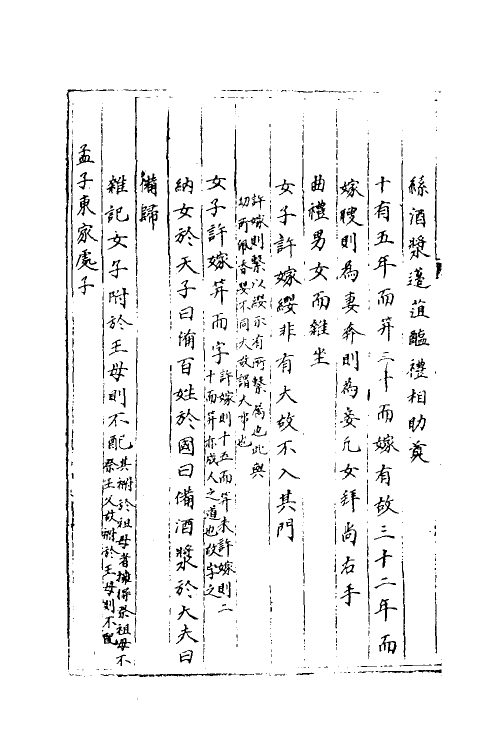 絲酒漿籩葅醢禮相助奠
十有五年而笄二十而嫁有故二十三年而
嫁聘則為妻奔則為妾凡女拜尚右手
曲禮男女而雜坐
女子許嫁纓非有大故不入其門
許嫁則繫以纓示有所繫屬也此與
幼所佩香纓不同大故謂大事也
女子許嫁笄而字許嫁則十五而笄未許嫁則二
十而笄亦成人之道也故字之
納女於天子曰備百姓於國曰備酒漿於大夫曰
備歸
雜記女子附於王母則不配其祔於祖母者擁得祭祖母不
祭王父故祔於王母則不配
孟子東家處子